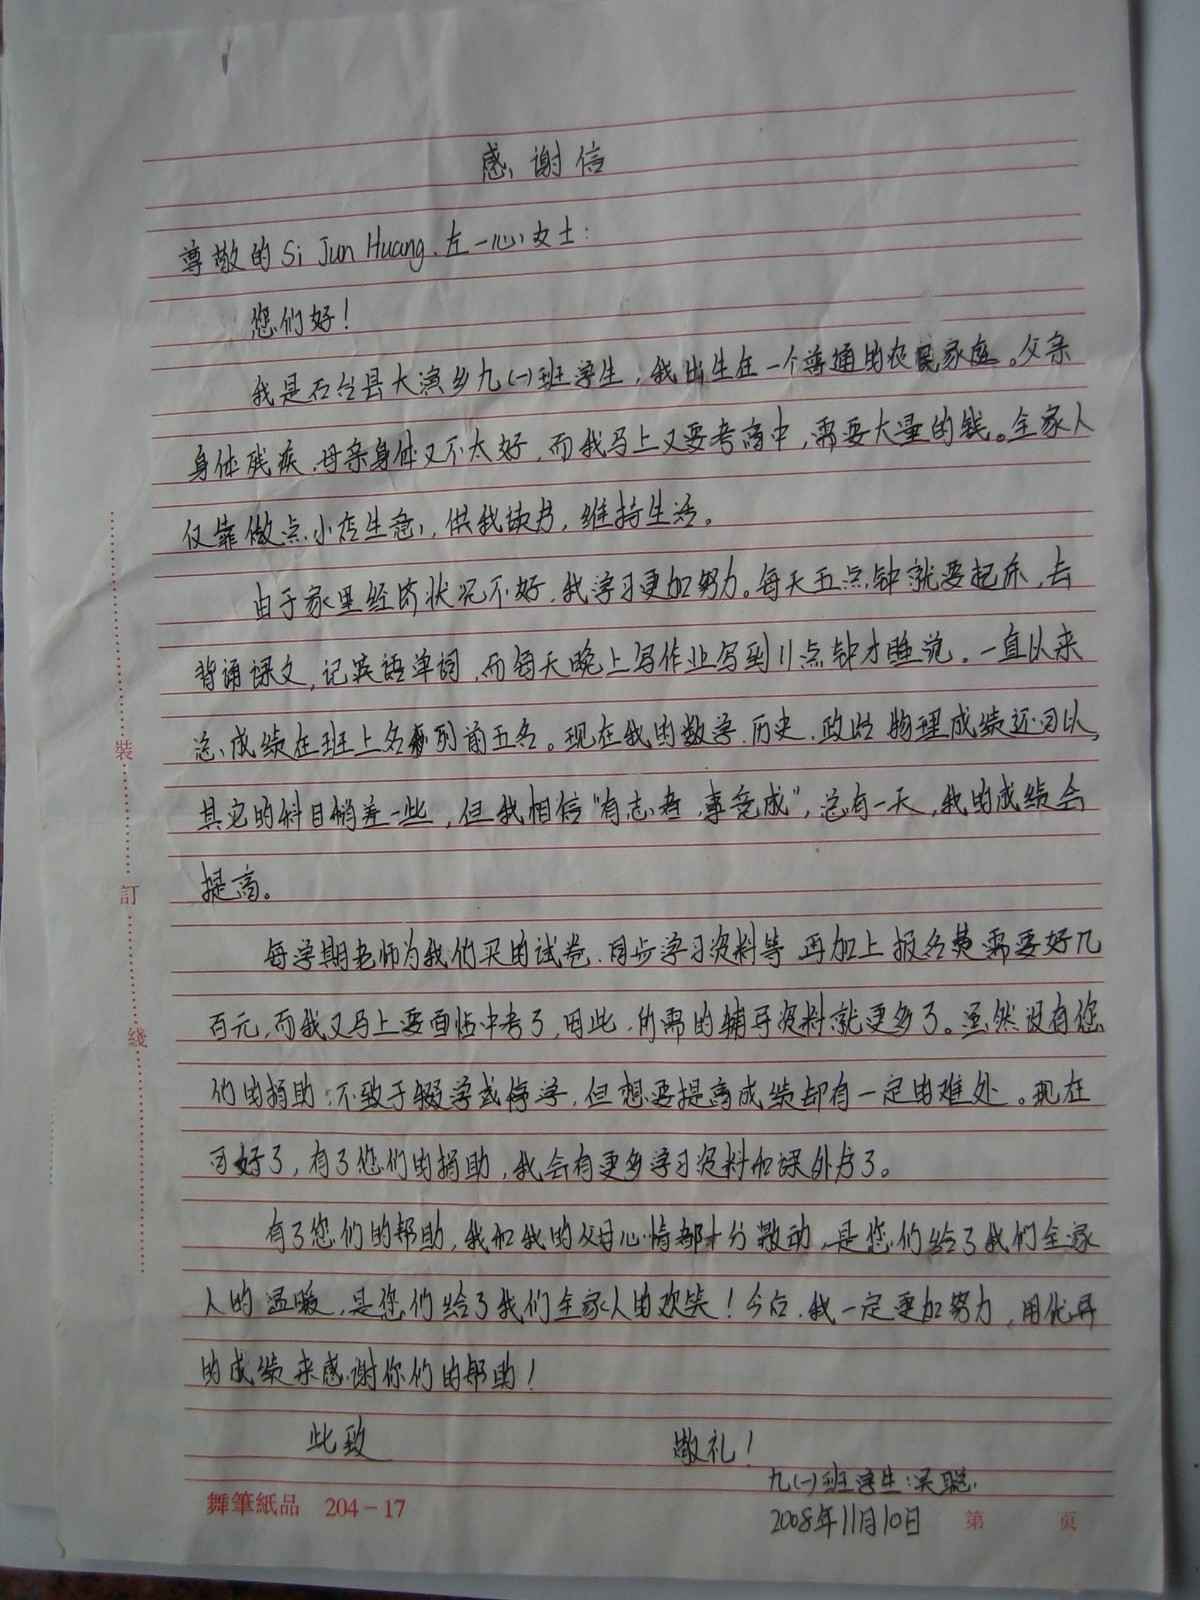 感谢信
尊敬的Si Jun Huang、左一心女士：
您们好！
我是石台县大演乡九(一)班学生，我出生在一个普通的农民家庭。父亲
身体残疾，母亲身体又不太好，而我马上又要考高中，需要大量的钱。全家人
仅靠做点小店生意，供我读书，维持生活。
由于家里经济状况不好，我学习更加努力。每天五点钟就要起床，去
背诵课文，记英语单词，而每天晚上写作业写到11点钟才睡觉。一直以来
总成绩在班上名列前五名。现在我的数学、历史、政治、物理成绩还可以，
其它的科目稍差一些，但我相信"有志者，事竟成"，总有一天，我的成绩会
提高。
每学期老师为我们买的试卷、同步学习资料等，再加上报名费需要好几
百元，而我又马上要面临中考了，因此，所需的辅导资料就更多了。虽然没有您
们的捐助，不致于辍学或停学，但想要提高成绩却有一定的难处。现在
可好了，有了您们的捐助，我会有更多学习资料和课外书了。
有了您们的帮助，我和我的父母心情都十分激动，是您们给了我们全家
人的温暖，是您们给了我们全家人的欢笑！今后，我一定更加努力，用优异
的成绩来感谢你们的帮助！
此致 敬礼！
九(一)班学生：吴聪
2008年11月10日
舞筆紙品 204-17 第 页
装 訂 綫